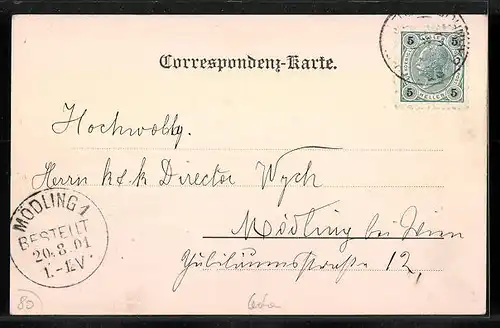 Correspondenz-Karte.
5 5
HELLER
5 5
Hochwollg.
Herrn k & k Director Wych
Mödling bei Wien
Jubiläumsstraße 12,
MÖDLING 1
BESTELLT
20.8.01
1.-IV.
85